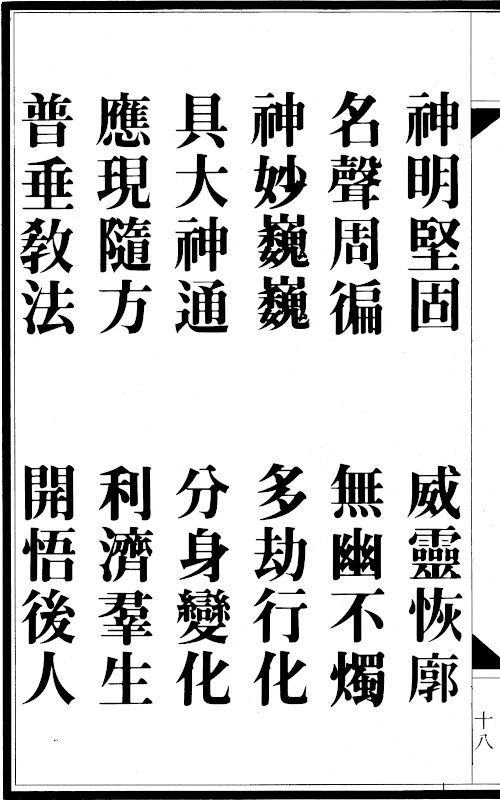 神明堅固　威靈恢廓
名聲周徧　無幽不燭
神妙巍巍　多劫行化
具大神通　分身變化
應現隨方　利濟羣生
普垂敎法　開悟後人
十八